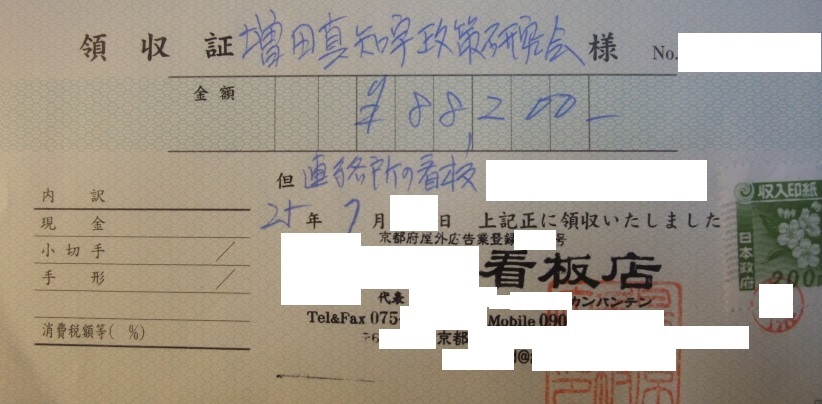 領収証 増田真知宇政策研究会 様 No.
金額 ¥88,200-
但 連絡所の看板
内訳
25年7月 日 上記正に領収いたしました
現金
京都府屋外広告業登録 号
小切手 /
看板店
手形 /
代表 カンバンテン
Tel&Fax 075- Mobile 090
京都
消費税額等( %)
収入印紙
日本政府
200